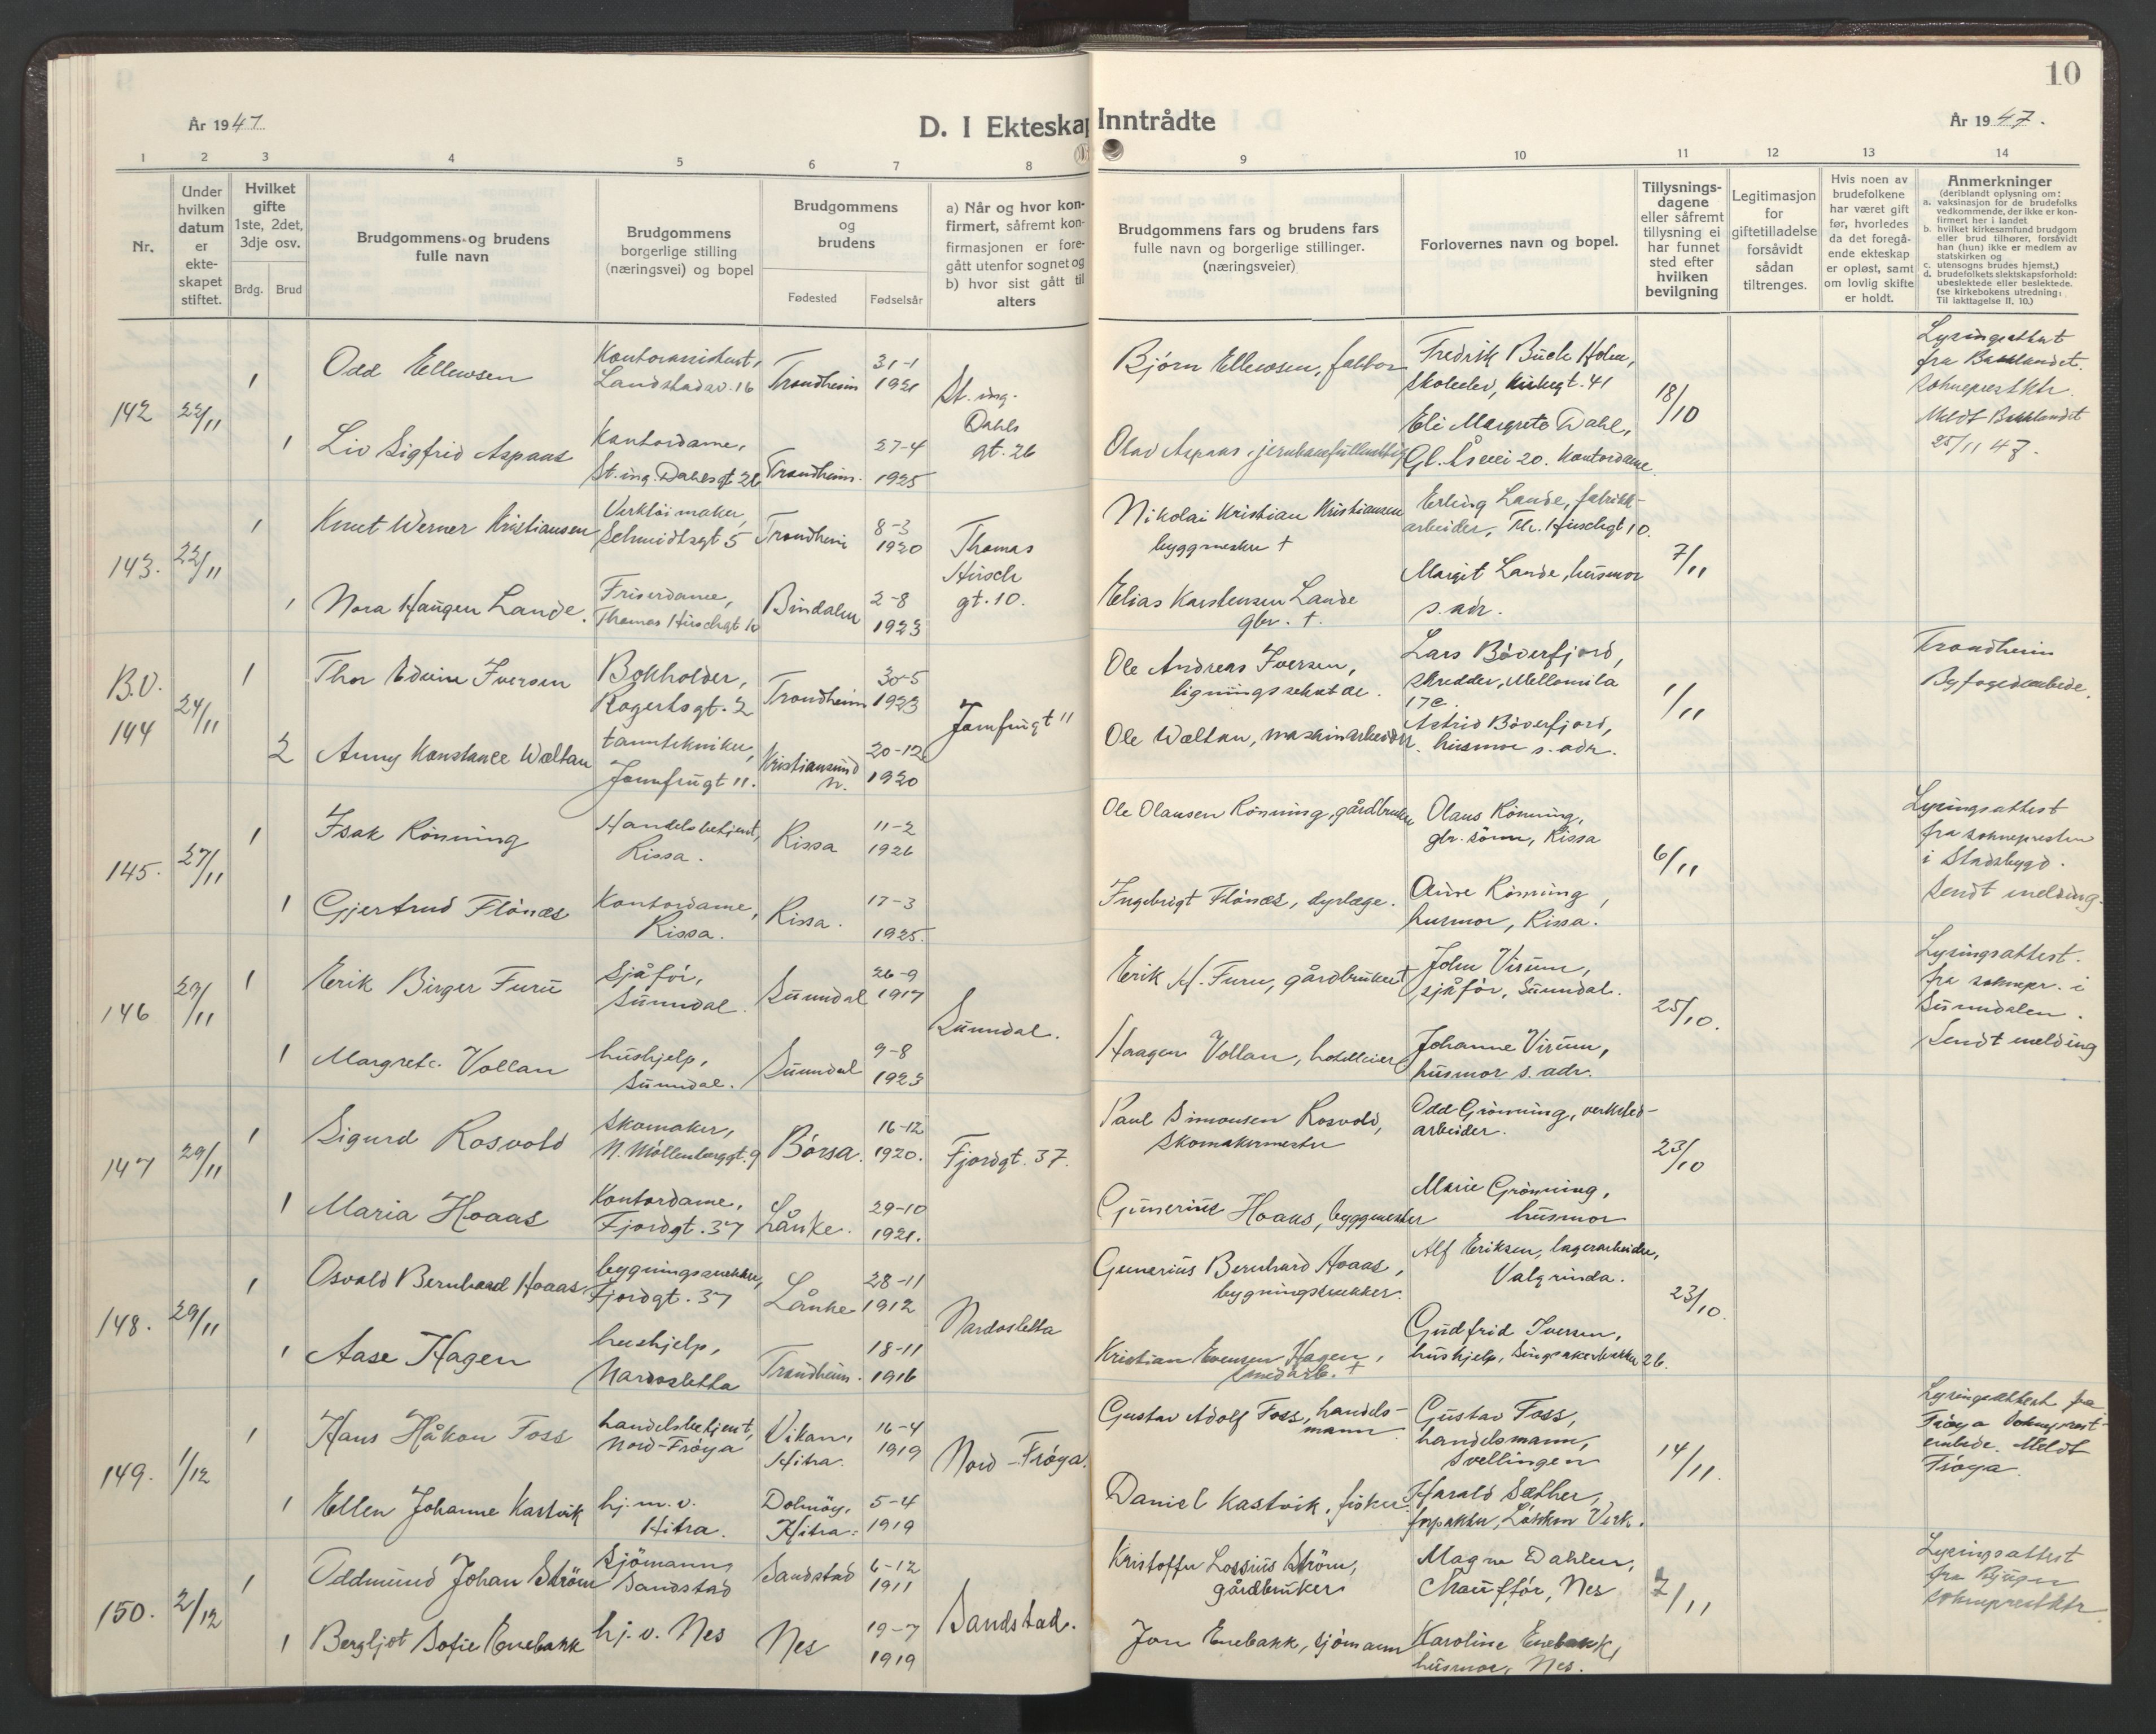 År 1947
D. I Ekteskap Inntrådte
10
År 1947.
1 2 3 4 5 6 7 8 9 10 11 12 13 14
Nr.
Under
hvilken
datum
er
ekte-
skapet
stiftet.
Hvilket
gifte
1ste, 2det,
3dje osv.
Brdg. Brud
Brudgommens og brudens
fulle navn
Brudgommens
borgerlige stilling
(næringsvei) og bopel
Brudgommens
og
brudens
Fødested Fødselsår
a) Når og hvor kon-
firmert, såfremt kon-
firmasjonen er fore-
gått utenfor sognet og
b) hvor sist gått til
alters
Brudgommens fars og brudens fars
fulle navn og borgerlige stillinger.
(næringsveier)
Forlovernes navn og bopel.
Tillysnings-
dagene
eller såfremt
tillysning ei
har funnet
sted efter
hvilken
bevilgning
Legitimasjon
for
giftetilladelse
forsåvidt
sådan
tiltrenges.
Hvis noen av
brudefolkene
har været gift
før, hvorledes
da det foregå-
ende ekteskap
er opløst, samt
om lovlig skifte
er holdt.
Anmerkninger
(deriblandt oplysning om:
a. vaksinasjon for de brudefolks
vedkommende, der ikke er kon-
firmert her i landet
b. hvilket kirkesamfund brudgom
eller brud tilhører, forsåvidt
han (hun) ikke er medlem av
statskirken og
c. utensogns brudes hjemst.)
d. brudefolkets slektskapsforhold:
ubeslektede eller beslektede.
(se kirkebokens utredning:
Til iakttagelse II. 10.)
142 22/11
1 Odd Ellewsen
Kontorassistent,
Landstadsv. 16
Trondheim
31-1
1921
St. ing.
Dahls
gt. 26
Bjørn Ellewsen, faktor
Fredrik Buch Holm,
skoleelev, Kirkegt. 41
18/10
Lysingsattest
fra Bakklandet
sokneprestktr.
Meldt Bakklandet
25/11 47.
1 Liv Sigfrid Aspaas
Kontordame,
St. ing. Dahlsgt 26
Trondheim.
27-4
1925
Olav Aspaas, jernbanefullmektig
Eli Margrete Dahl,
Gl. Åsvei 20. Kontordame.
143. 22/11
1 Knut Werner Kristiansen
Verktøimaker
Schmidtsgt 5
Trondheim
8-3
1920
Thomas
Hirsch
gt. 10.
Nikolai Kristian Kristiansen
byggmester †
Erling Lande, fabrikk-
arbeider, Th. Hirschgt 10.
7/11
1 Nora Haugen Lande.
Friserdame,
Thomas Hirschgt 10
Bindalen
2-8
1923
Elias Karstensen Lande
gbr. †.
Margit Lande, husmor
s. adr.
B.V.
144 24/11
1 Thor Edvin Iversen
Bokholder,
Rogertsgt. 2
Trondheim
30-5
1923
Jomfrugt 11
Ole Andreas Iversen,
ligningssekretær.
Lars Bøverfjord,
skredder, Mellomila
17c.
1/11
Trondheim
Byfogedembede.
2 Anny Konstance Woltan
tanntekniker,
Jomfrugt 11.
Kristiansund
N.
20-12
1920
Ole Woltan, maskinarbeider.
Astrid Bøverfjord,
husmor s. adr.
145. 27/11
1 Isak Rönning
Handelsbetjent,
Rissa.
Rissa
11-2
1926
Ole Olausen Rönning, gårdbruker
Olaus Rönning,
gbr. sönn, Rissa
6/11
Lysingsattest
fra soknepresten
i Stadsbygd.
Sendt melding.
1 Gjertrud Flönæs
Kontordame,
Rissa.
Rissa.
17-3
1925.
Ingebrigt Flönæs, dyrlæge.
Aune Rönning,
husmor, Rissa.
146 29/11
1 Erik Birger Furu
Sjåför,
Sunndal.
Sunndal
26-9
1917
Sunndal.
Erik M. Furu, gårdbruker †
John Virum,
sjåför, Sunndal.
25/10.
Lysingsattest.
fra soknepr. i
Sunndalen.
Sendt melding
1 Margrete Vollan
hushjelp,
Sunndal.
Sunndal
9-8
1923
Haagen Vollan, hotelleier
Johanne Virum,
husmor s. adr.
147 29/11
1 Sigurd Rosvold
Skomaker,
N. Möllenberggt. 9
Börsa.
16-12
1920.
Fjordgt. 37.
Paul Simonsen Rosvold,
Skomakermester
Odd Grönning, verksted-
arbeider.
23/10
1 Maria Hoaas
Kontordame,
Fjordgt. 37
Lånke.
29-10
1921.
Gunerius Hoaas, byggmester
Marie Grönning,
husmor
148. 29/11
1 Osvald Bernhard Hoaas.
bygningssnekker,
Fjordgt. 37
Lånke
28-11
1912
Nardosletta
Gunerius Bernhard Hoaas,
bygningssnekker.
Alf Eriksen, lagerarbeider,
Valgrinda.
23/10.
1 Aase Hagen
hushjelp,
Nardosletta
Trondheim.
18-11
1916
Kristian Evensen Hagen,
smedarb. †
Gudfrid Iversen,
hushjelp, Singsakerbakken 26.
149. 1/12
1 Hans Håkon Foss
handelsbetjent,
Nord-Fröya
Vikan,
Hitra.
16-4
1919
Nord-Fröya.
Gustav Adolf Foss, handels-
mann
Gustav Foss,
handelsmann,
Svellingen
14/11.
Lysingsattest fra
Fröya sokneprest-
embede. Meldt
Fröya.
1 Ellen Johanne Kastvik
hj. m. v.
Hitra.
Dolmöy,
Hitra.
5-4
1919
Daniel Kastvik, fisker.
Harald Sæther,
forpakter, Løkken Verk.
150. 2/12
1 Oddmund Johan Ström
Sjömann,
Sandstad
Sandstad
6-12
1911
Sandstad.
Kristoffer Lossius Ström,
gårdbruker
Magne Dahlen,
Chaufför, Nes
7/11
Lysingsattest
fra Bjugn
sokneprestktr.
1 Bergljot Sofie Enebakk
hj. v. Nes
Nes
19-7
1919
Jon Enebakk, sjömann
Karoline Enebakk,
husmor, Nes.